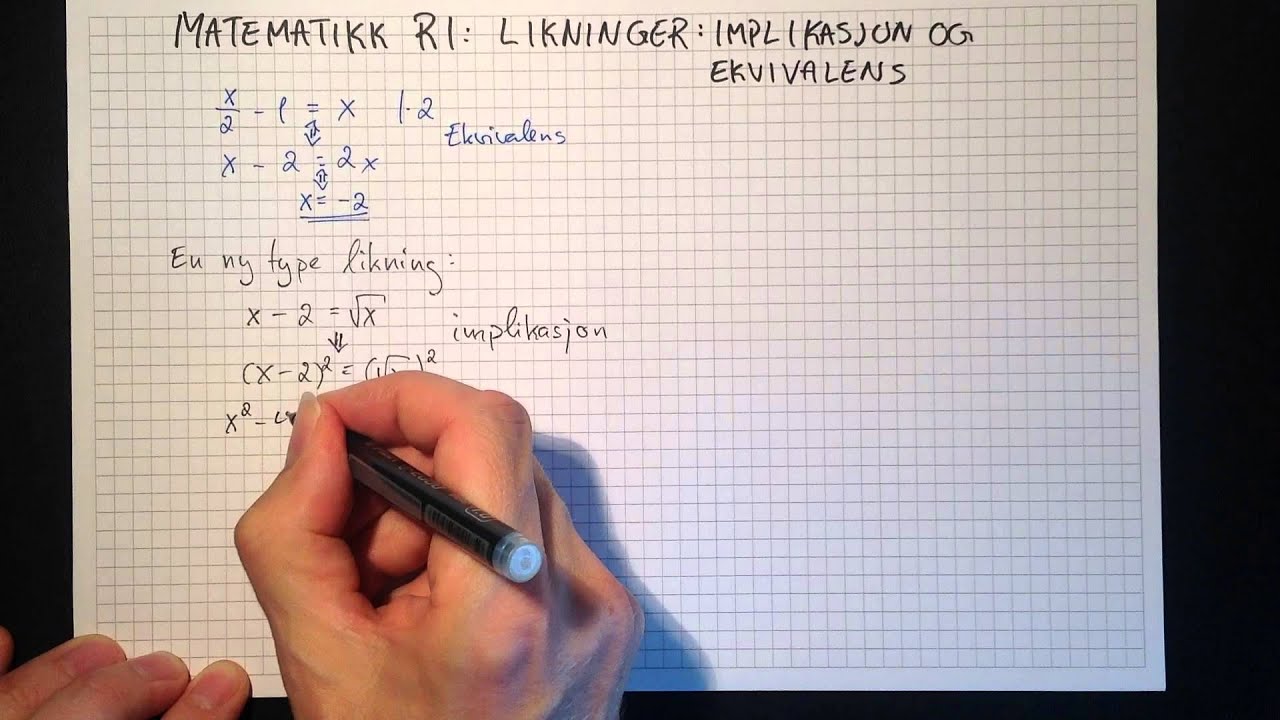 MATEMATIKK R1: LIKNINGER: IMPLIKASJON OG
EKVIVALENS
x/2 - 1 = x |·2
⇕
Ekvivalens
x - 2 = 2x
⇕
x = -2
En ny type likning:
x - 2 = √x
⇓
implikasjon
(x-2)² = (√x)²
x² - 4